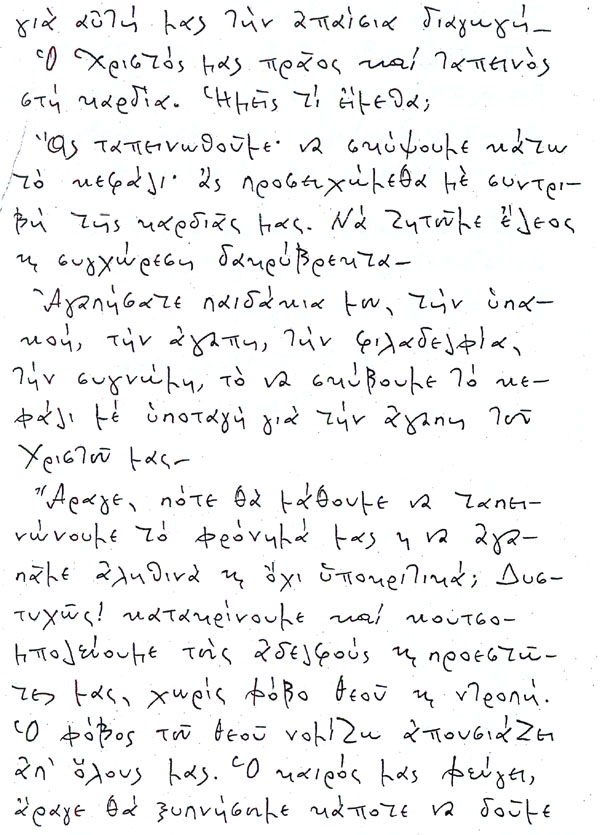 γιὰ αὐτή μας τὴν ἀπαίσια διαγωγή_
Ὁ Χριστός μας πρᾶος καί ταπεινὸς
στή καρδία. Ἡμεῖς τί εἴμεθα;
Ἂς ταπεινωθοῦμε· νὰ σκύψουμε κάτω
τὸ κεφάλι· ἂς προσευχώμεθα μὲ συντρι-
βὴ τῆς καρδιᾶς μας. Νὰ ζητοῦμε ἔλεος
κ συγχώρεση δακρύβρεκτα_
Ἀγαπήσατε παιδάκια μου, τὴν ὑπα-
κοή, τὴν ἀγάπη, τὴν φιλαδελφία,
τὴν συγνώμη, τὸ νὰ σκύβουμε τὸ κε-
φάλι μὲ ὑποταγὴ γιὰ τὴν ἀγάπη τοῦ
Χριστοῦ μας_
Ἄραγε, πότε θὰ μάθουμε νὰ ταπει-
νώνουμε τὸ φρόνημά μας κ νὰ ἀγα-
πᾶμε ἀληθινὰ κ ὄχι ὑποκριτικά; Δυσ-
τυχῶς! κατακρίνουμε καί κουτσο-
μπολεύουμε τοὺς ἀδελφούς κ προεστῶ-
τες μας, χωρίς φόβο θεοῦ κ ντροπή.
Ὁ φόβος τοῦ θεοῦ νομίζω ἀπουσιάζει
ἀπ' ὅλους μας. Ὁ καιρός μας φεύγει,
ἄραγε θὰ ξυπνήσουμε κάποτε νὰ δοῦμε